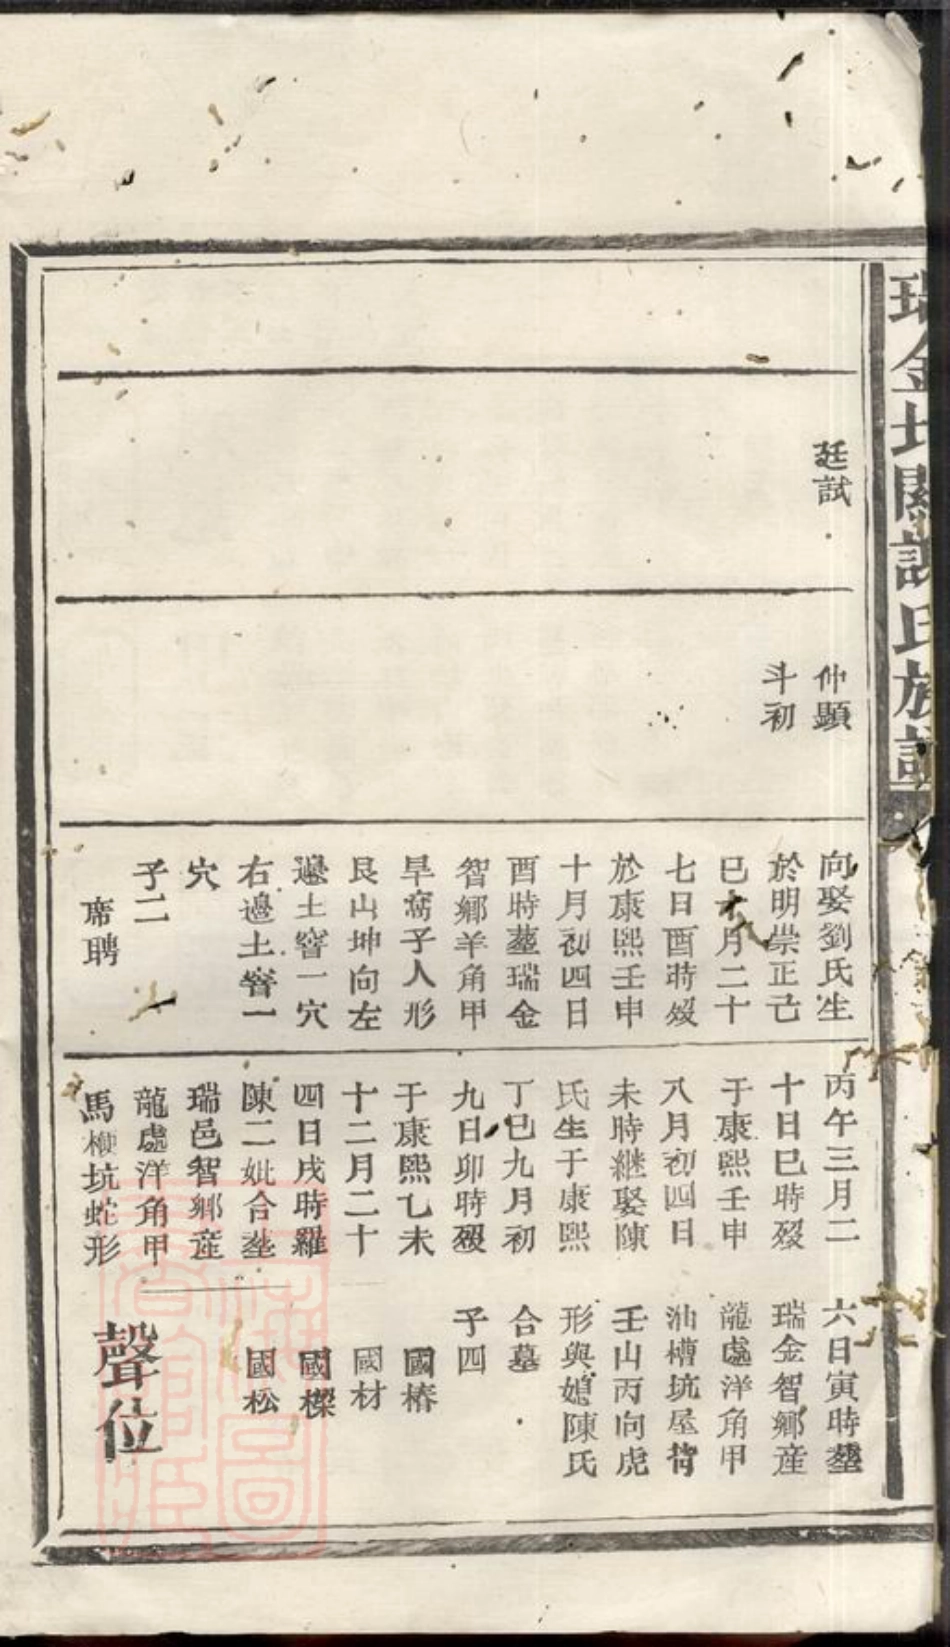 瑞金坵關謝氏族譜
廷試
仲顯
斗初
向娶劉氏生
於明崇正己
巳十月二十
七日酉時歿
於康熙壬申
十月初四日
酉時塟瑞金
智鄉羊角甲
旱窩子人形
艮山坤向左
邊土窨一穴
右邊土窨一
穴
子二
席聘
丙午三月二
十日巳時歿
于康熙壬申
八月初四日
未時継娶陳
氏生于康熙
丁巳九月初
九日卯時歿
于康熙乙未
十二月二十
四日戌時羅
陳二妣合塟
瑞邑智鄉産
龍處洋角甲
馬坑蛇形
六日寅時塟
瑞金智鄉産
龍處洋角甲
油槽坑屋背
壬山丙向虎
形與媳陳氏
合墓
子四
國椿
國材
國樑
國松
聲位